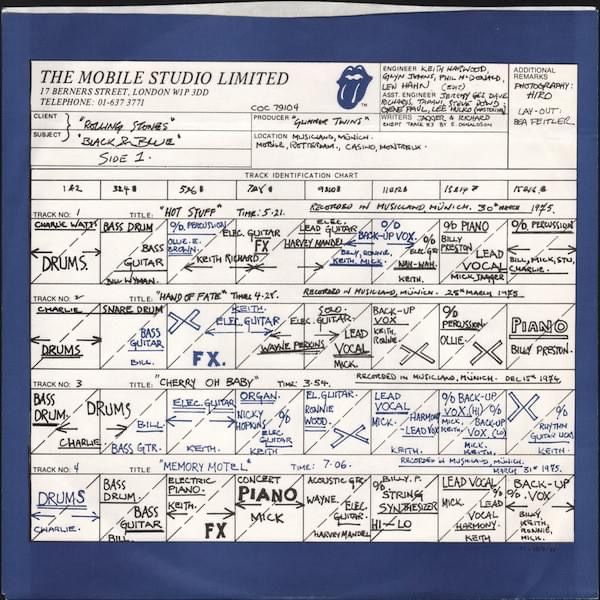 THE MOBILE STUDIO LIMITED
17 BERNERS STREET, LONDON W1P 3DD
TELEPHONE: 01-637 3771
COC 79104
ENGINEER KEITH HARWOOD,
GLYN JOHNS, PHIL McDONALD,
LEW HAHN
ASST. ENGINEER JEREMY GEE, DAVE
RICHARDS, TAPANI, STEVE DOWD,
GENE PAUL, LEE HULKO (MASTERING)
WRITERS JAGGER & RICHARD
EXCEPT TRACK #3 BY E. DONALDSON
ADDITIONAL
REMARKS
PHOTOGRAPHY:
HIRO
LAY-OUT:
BEA FEITLER
CLIENT "ROLLING STONES"
SUBJECT "BLACK & BLUE"
SIDE 1.
PRODUCER "GLIMMER TWINS"
LOCATION MUSICLAND, MÜNICH.
MOBILE, ROTTERDAM, CASINO, MONTREUX
TRACK IDENTIFICATION CHART
1 & 2 3 & 4 5 & 6 7 & 8 9 & 10 11 & 12 13 & 14 15 & 16
TRACK NO: 1 TITLE: "HOT STUFF" TIME: 5.21. RECORDED IN MUSICLAND, MÜNICH. 30th MARCH 1975.
CHARLIE WATTS
DRUMS.
BASS DRUM
BASS
GUITAR
BILL WYMAN.
% PERCUSSION
OLLIE. E.
BROWN.
KEITH RICHARD
ELEC. GUITAR
FX
ELEC.
LEAD GUITAR
HARVEY MANDEL
%
BACK-UP VOX.
BILLY, RONNIE,
KEITH, MICK.
% ELEC. GTR
WAH-WAH.
KEITH.
% PIANO
BILLY
PRESTON
LEAD
VOCAL
MICK JAGGER
%. PERCUSSION
BILL, MICK, STU,
CHARLIE.
TRACK NO: 2 TITLE: "HAND OF FATE" TIME: 4.28. RECORDED IN MUSICLAND, MÜNICH. 25th MARCH, 1975
CHARLIE
DRUMS
SNARE DRUM
BASS
GUITAR
BILL.
X
FX.
KEITH
ELEC GUITAR
SOLO.
ELEC. GUITAR.
WAYNE PERKINS
LEAD
VOCAL
MICK.
BACK-UP
VOX
KEITH,
RONNIE.
X
%
PERCUSSION.
OLLIE.
X
PIANO
BILLY PRESTON.
TRACK NO: 3 TITLE: "CHERRY OH BABY" TIME: 3.54. RECORDED IN MUSICLAND, MÜNICH. DEC 15th 1974.
BASS
DRUM.
CHARLIE
DRUMS
BILL
BASS GTR.
ELEC. GUITAR
KEITH.
ORGAN.
NICKY
HOPKINS
%
ELEC
GUITAR
KEITH
EL. GUITAR.
RONNIE
WOOD.
X
LEAD
VOCAL
MICK.
HARMONY
LEAD VOX
KEITH.
% BACK-UP
VOX. (HI) %
MICK, BACK-UP
KEITH. VOX. (LO)
MICK.
KEITH
X
%
RHYTHM
GUITAR
KEITH
TRACK NO: 4 TITLE "MEMORY MOTEL" TIME: 7.06. RECORDED IN MUSICLAND, MÜNICH,
MARCH 31st 1975.
DRUMS
CHARLIE.
BASS
DRUM.
BASS
GUITAR
BILL
ELECTRIC
PIANO.
KEITH.
FX
CONCERT
PIANO
MICK
ACOUSTIC GTR
WAYNE.
ELEC.
GUITAR.
HARVEY MANDEL
BILLY. P.
%
STRING
SYNTHESIZER
HI – LO
LEAD VOCAL
MICK.
%
LEAD
VOCAL
HARMONY.
KEITH
BACK-UP
% VOX %
BILLY,
KEITH,
RONNIE,
MICK.